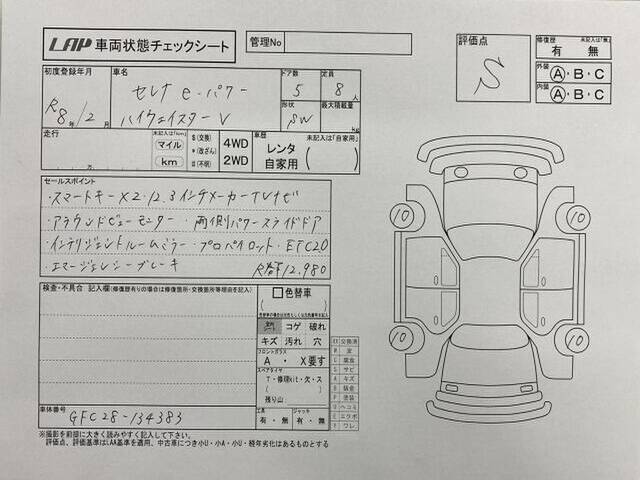 LAP 車両状態チェックシート
管理No
評価点
S
修復歴 未記入は「無」
有 ・ 無
外装 A・B・C
内装 A・B・C
初度登録年月
R8年/2月
車名
セレナ e-パワー
ハイウェイスターV
ドア数
5
定員
8人
形状
SW
最大積載量
kg
走行
未記入は「km」
マイル
km
S (交換)
* (改ざん)
# (不明)
4WD
2WD
車歴 未記入は「自家用」
レンタ
自家用
セールスポイント
・スマートキーX2・12.3インチメーカーTVナビ
・アラウンドビューモニター ・両側パワースライドドア
・インテリジェントルームミラー・プロパイロット・ETC2.0
・エマージェンシーブレーキ
12.980
検査・不具合 記入欄(修復歴有りの場合は修復箇所・交換箇所等理由を記入)
色替車
コゲ 破れ
キズ 汚れ 穴
フロントガラス
A ・ X要す
スペアタイヤ
T・修理kit・欠・ス
残り山
工具
有・無
ジャッキ
有・無
XX 交換済
W 波
C 腐食
S サビ
A キズ
B 鈑金
P 塗装
U ヘコミ
E エクボ
Y ワレ
車体番号
GFC28-134383
※撮影を前提に大きく読みやすく記入して下さい。
評価点、評価基準はLAA基準を適用、中古車につき小U・小A・小U・経年劣化はあるものとする
10
10
10
10